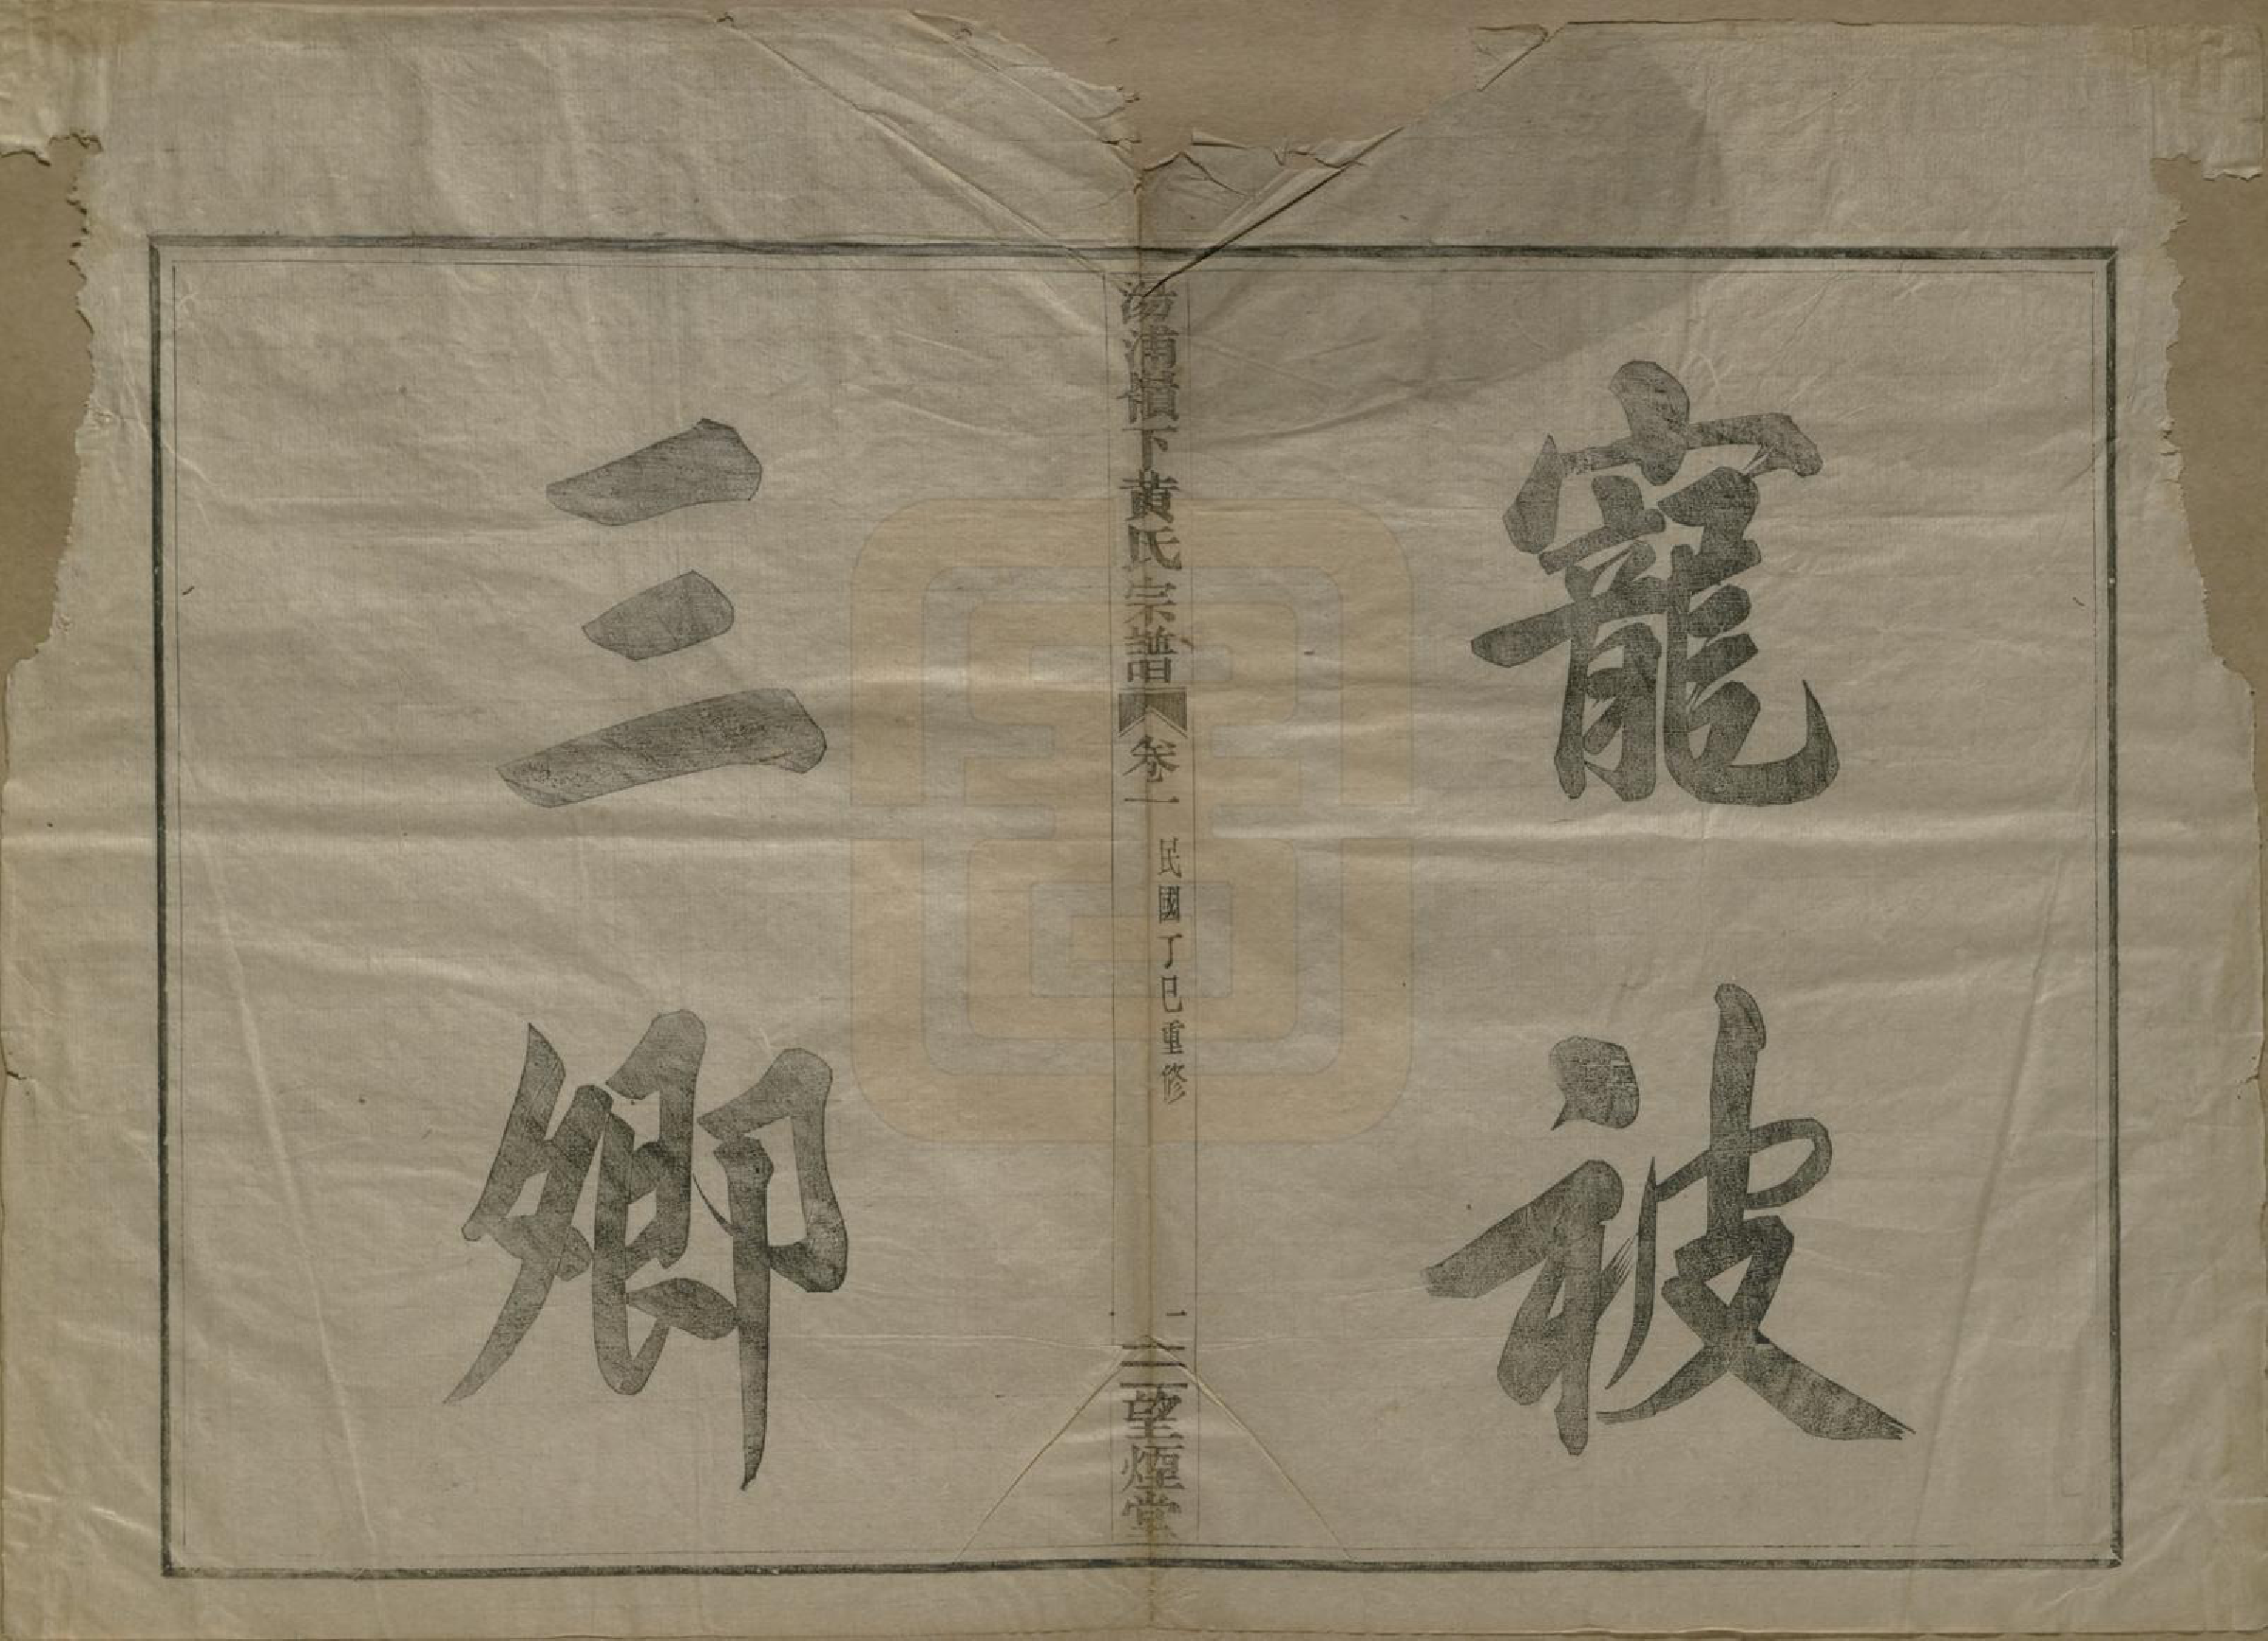 寵被
湯浦嶺下黄氏宗譜 卷一 民國丁巳重修 一 三望煙堂
三卿